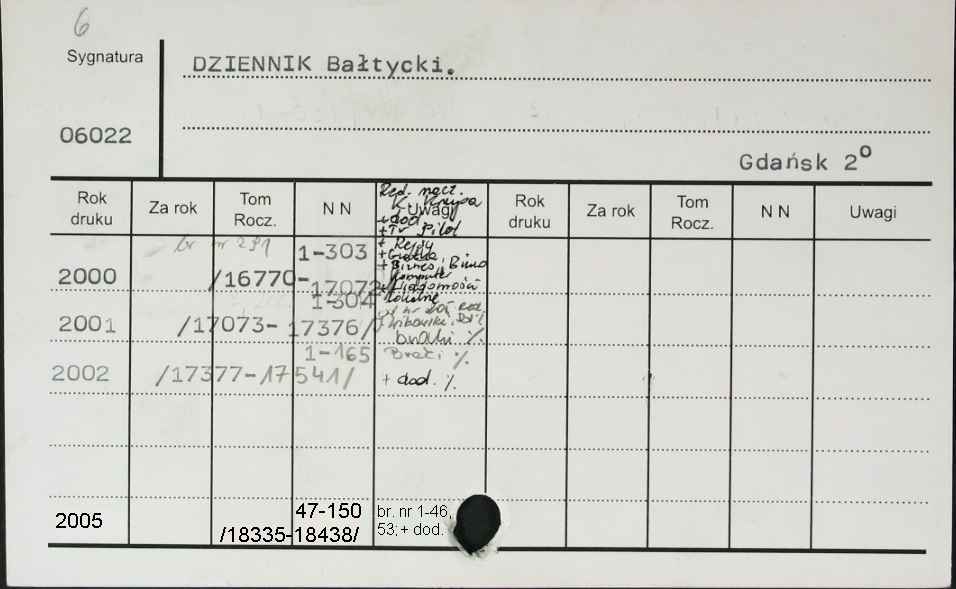 6
Sygnatura
DZIENNIK Bałtycki.
06022
Gdańsk 2°
Rok druku Za rok Tom Rocz. N N Uwagi Rok druku Za rok Tom Rocz. N N Uwagi
Red. nacz.
K. Krupa
+ dod
+ Tr Pilot
+ Rejsy
+ Gratka
+ Biznes, Biuro
Komputer
+ Wiadomości
lokalne
br nr 291
1-303
2000 /16770-17072/
1-304
2001 /17073-17376/
braki %.
1-165 Braki %.
2002 /17377-17541/ + dod. %.
47-150 br. nr 1-46,
2005 /18335-18438/ 53; + dod.